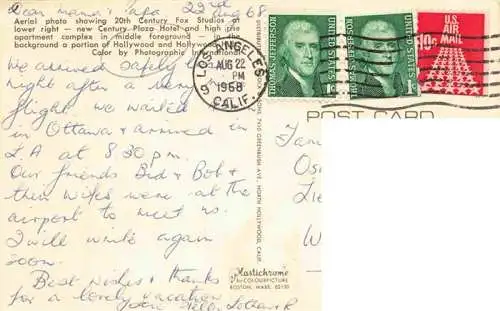 Dear Mama & Papa 22nd Aug 68
Aerial photo showing 20th Century Fox Studios at
lower right — new Century Plaza Hotel and high rise
apartment complex in middle foreground — in the
background a portion of Hollywood and Hollywood
Color by Photographic International
We arrived safely
night after a very
flight. we waited
in Ottawa & arrived in
L.A at 8:30 p.m.
Our friends Bid & Bob &
their wifes were at the
airport to meet us.
I will write again
soon.
Best wishes & thanks
for a lovely vacation
LOS ANGELES
AUG 22
PM
1968
CALIF.
THOMAS JEFFERSON
UNITED STATES
1c
THOMAS JEFFERSON
UNITED STATES
1c
U.S.
AIR
MAIL
10c
POST CARD
7950 GREENBUSH AVE., NORTH HOLLYWOOD, CALIF.
Mastichrome
by COLOURPICTURE
BOSTON, MASS. 02130